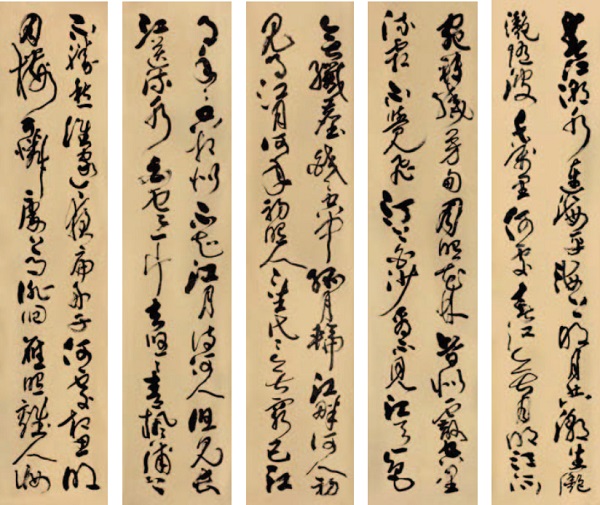 春江潮水連海平海上明月共潮生灩
灩隨波千萬里何處春江無月明江流
宛轉繞芳甸月照花林皆似霰空里
流霜不覺飛汀上白沙看不見江天一色
無纖塵皎皎空中孤月輪江畔何人初
見月江月何年初照人人生代代無窮已江
月年年只相似不知江月待何人但見長
江送流水白雲一片去悠悠青楓浦上
不勝愁誰家今夜扁舟子何處相思明
月樓可憐樓上月徘徊應照離人妝